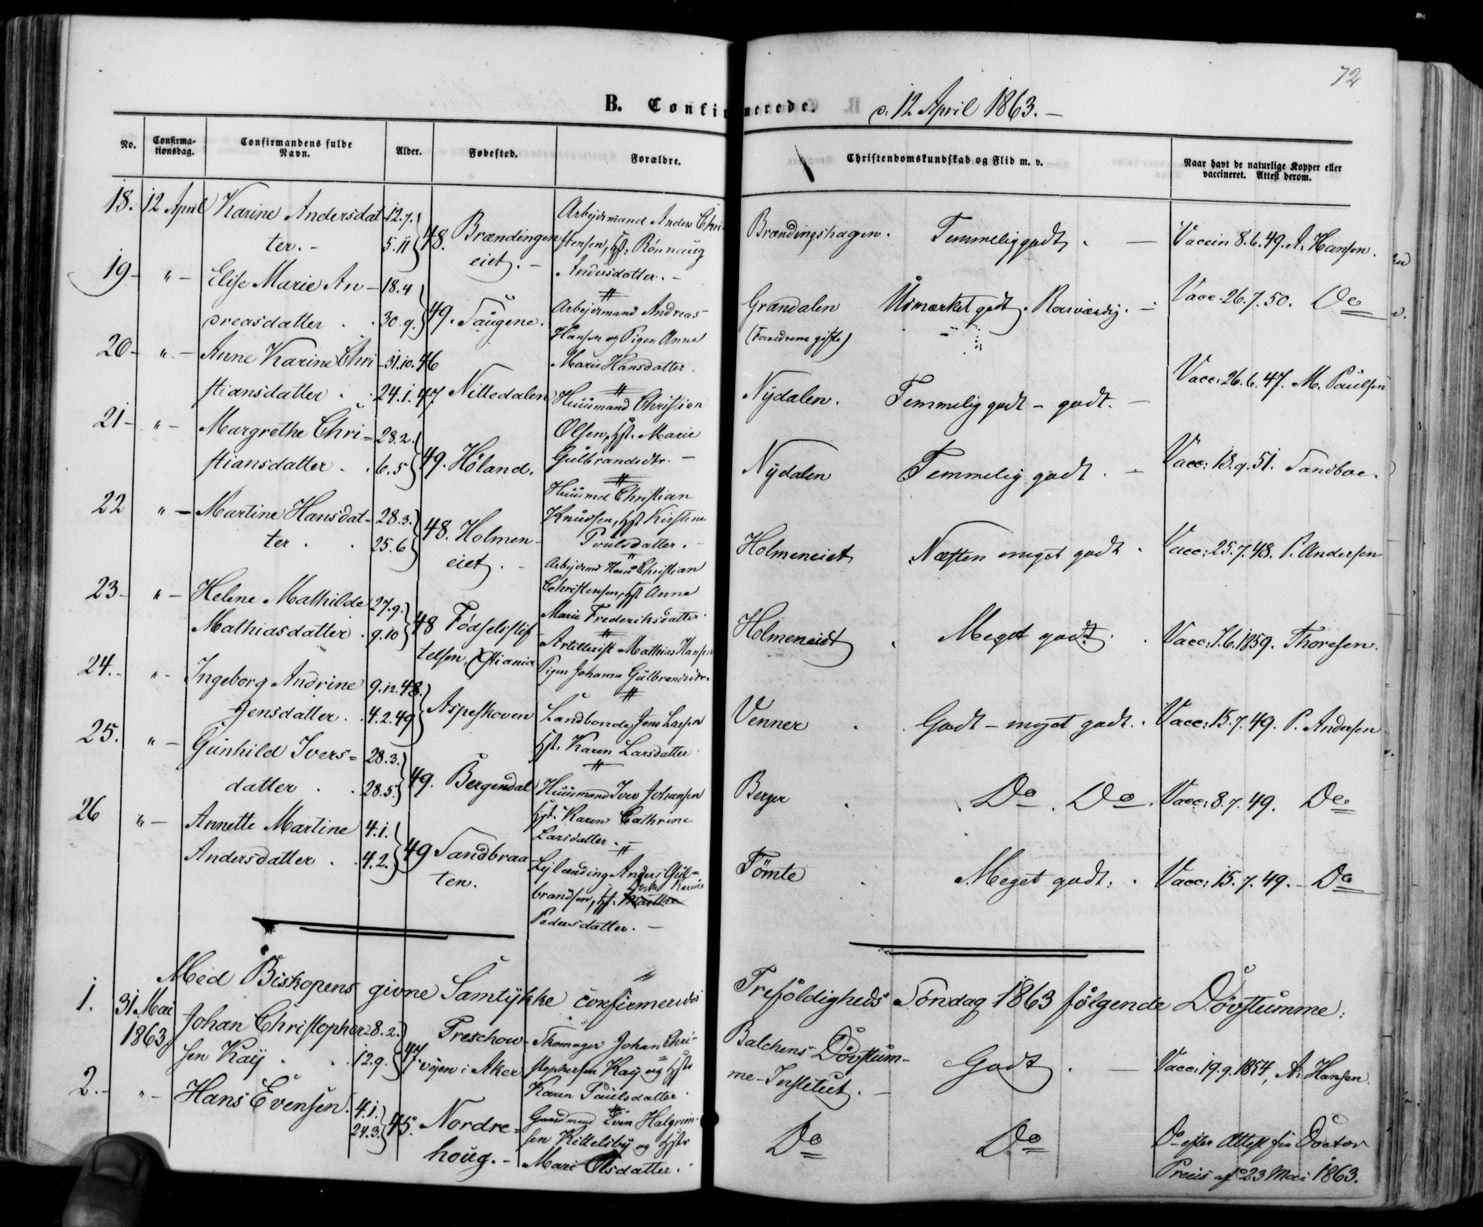 72
B. Confirmerede. d. 12 April 1863. –
No.
Confirma-
tionsdag.
Confirmandens fulde
Navn.
Alder.
Fødested.
Forældre.
Christendomskundskab og Flid m. v.
Naar havt de naturlige Kopper eller
vaccineret. Attest derom.
18. 12 April Karine Andersdat
ter. –
12.7.
5.11 48.
Brændingen
eiet. –
Arbejdsmand Anders Chri-
stensen, Hst. Rönnaug
Andersdatter. –
Brændingshagen. Temmelig godt. – Vaccin 8.6.49. A. Hansen.
19 – " – Elise Marie An –
dreasdatter . .
18.4
30.9. 49.
Saugene.
Arbejdsmand Andreas
Hansen og Pigen Anne
Marie Hansdatter.
Grændalen
(Forældrene gifte)
Udmærket godt. Rosværdig. – Vacc. 26.7.50. Do
20 – " – Anne Karine Chri
stiansdatter .
31.10.46
24.1.47
Nittedalen
Huusmand Christian
Olsen, Hst. Marie
Gulbrandsdtr. –
Nydalen. Temmelig godt – godt. – Vacc: 26.6.47. M. Paulsen
21 – " – Margrethe Chri –
stiansdatter .
28.2.
6.5 49.
Høland.
Huusmd Christian
Knudsen, Hst Kirstine
Poulsdatter. –
Nydalen Temmelig godt. – Vacc: 13.9.51. Sandboe.
22 " – Martine Hansdat –
ter . .
28.3.
25.6 48.
Holmen –
eiet. –
Arbejdsmd Hans Christian
Christensen, Hst Anne
Marie Frederiksdatter.
Holmeneiet Næsten meget godt. Vacc: 25.7.48. P. Andersen
23 – " – Helene Mathilde
Mathiasdatter .
27.9.
9.10 48
Fødselsstif
telsen, Xstiania
Artillerist Mathias Hansen
Pigen Johanne Gulbrandsdtr.
Holmeneidt Meget godt. Vacc: 7.6.1859. Thoresen.
24. – " – Ingeborg Andrine
Jensdatter .
9.12.48.
4.2.49
Aspeskoven
Landbonde Jens Larsen
Hst. Karen Larsdatter
Venner . Godt – meget godt. Vacc: 15.7.49. P. Andersen
25. " – Gunhild Ivers –
datter . .
28.3.
28.5 49.
Bergendal
Huusmand Iver Johansen
Hst. Karen Cathrine
Larsdatter. –
Berger . Do . Do . Vacc: 8.7.49. Do
26 " – Annette Martine
Andersdatter .
4.1.
4.2. 49
Sandbraa
ten.
Lejlænding Anders Gul –
brandsen, Hst.
Pedersdatter. –
Tømte . Meget godt. Vacc: 15.7.49. – Do
Med Biskopens givne Samtykke confirmeredes Trefoldigheds Søndag 1863 følgende Døvstumme:
1. 31 Mai
1863
Johan Christopher
sen Kaij . .
8.2.
12.9. 47.
Treschow –
vejen i Aker
Skomager Johan Chri –
stophersen Kaij og Hst
Karen Paulsdatter.
Balchens Døvstum –
me-Institut. –
Godt . – Vacc: 19.9.1854, A. Hansen.
2. – " – Hans Evensen.
4.1.
24.3. 45.
Nordre –
houg. –
Gaardmand Even Halgrim –
sen Kittelsby og Hst
Mari Olsdatter.
Do Do Do efter Attest fra Doctor
Preus af 23 Mai 1863.